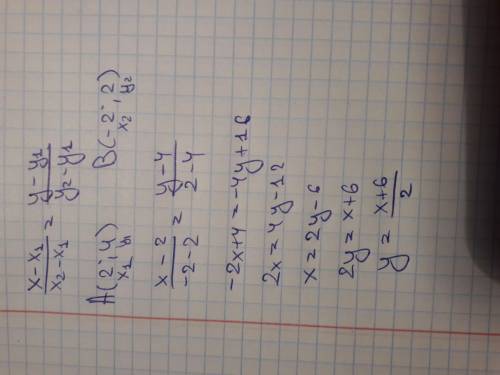 x-x1/x2-x1 = y-y1/y2-y1
A(2;4) B(-2;2)
x1 y1 x2 y2
x-2/-2-2 = y-4/2-4
-2x+4=-4y+16
2x=4y-12
x=2y-6
2y=x+6
y= x+6/2